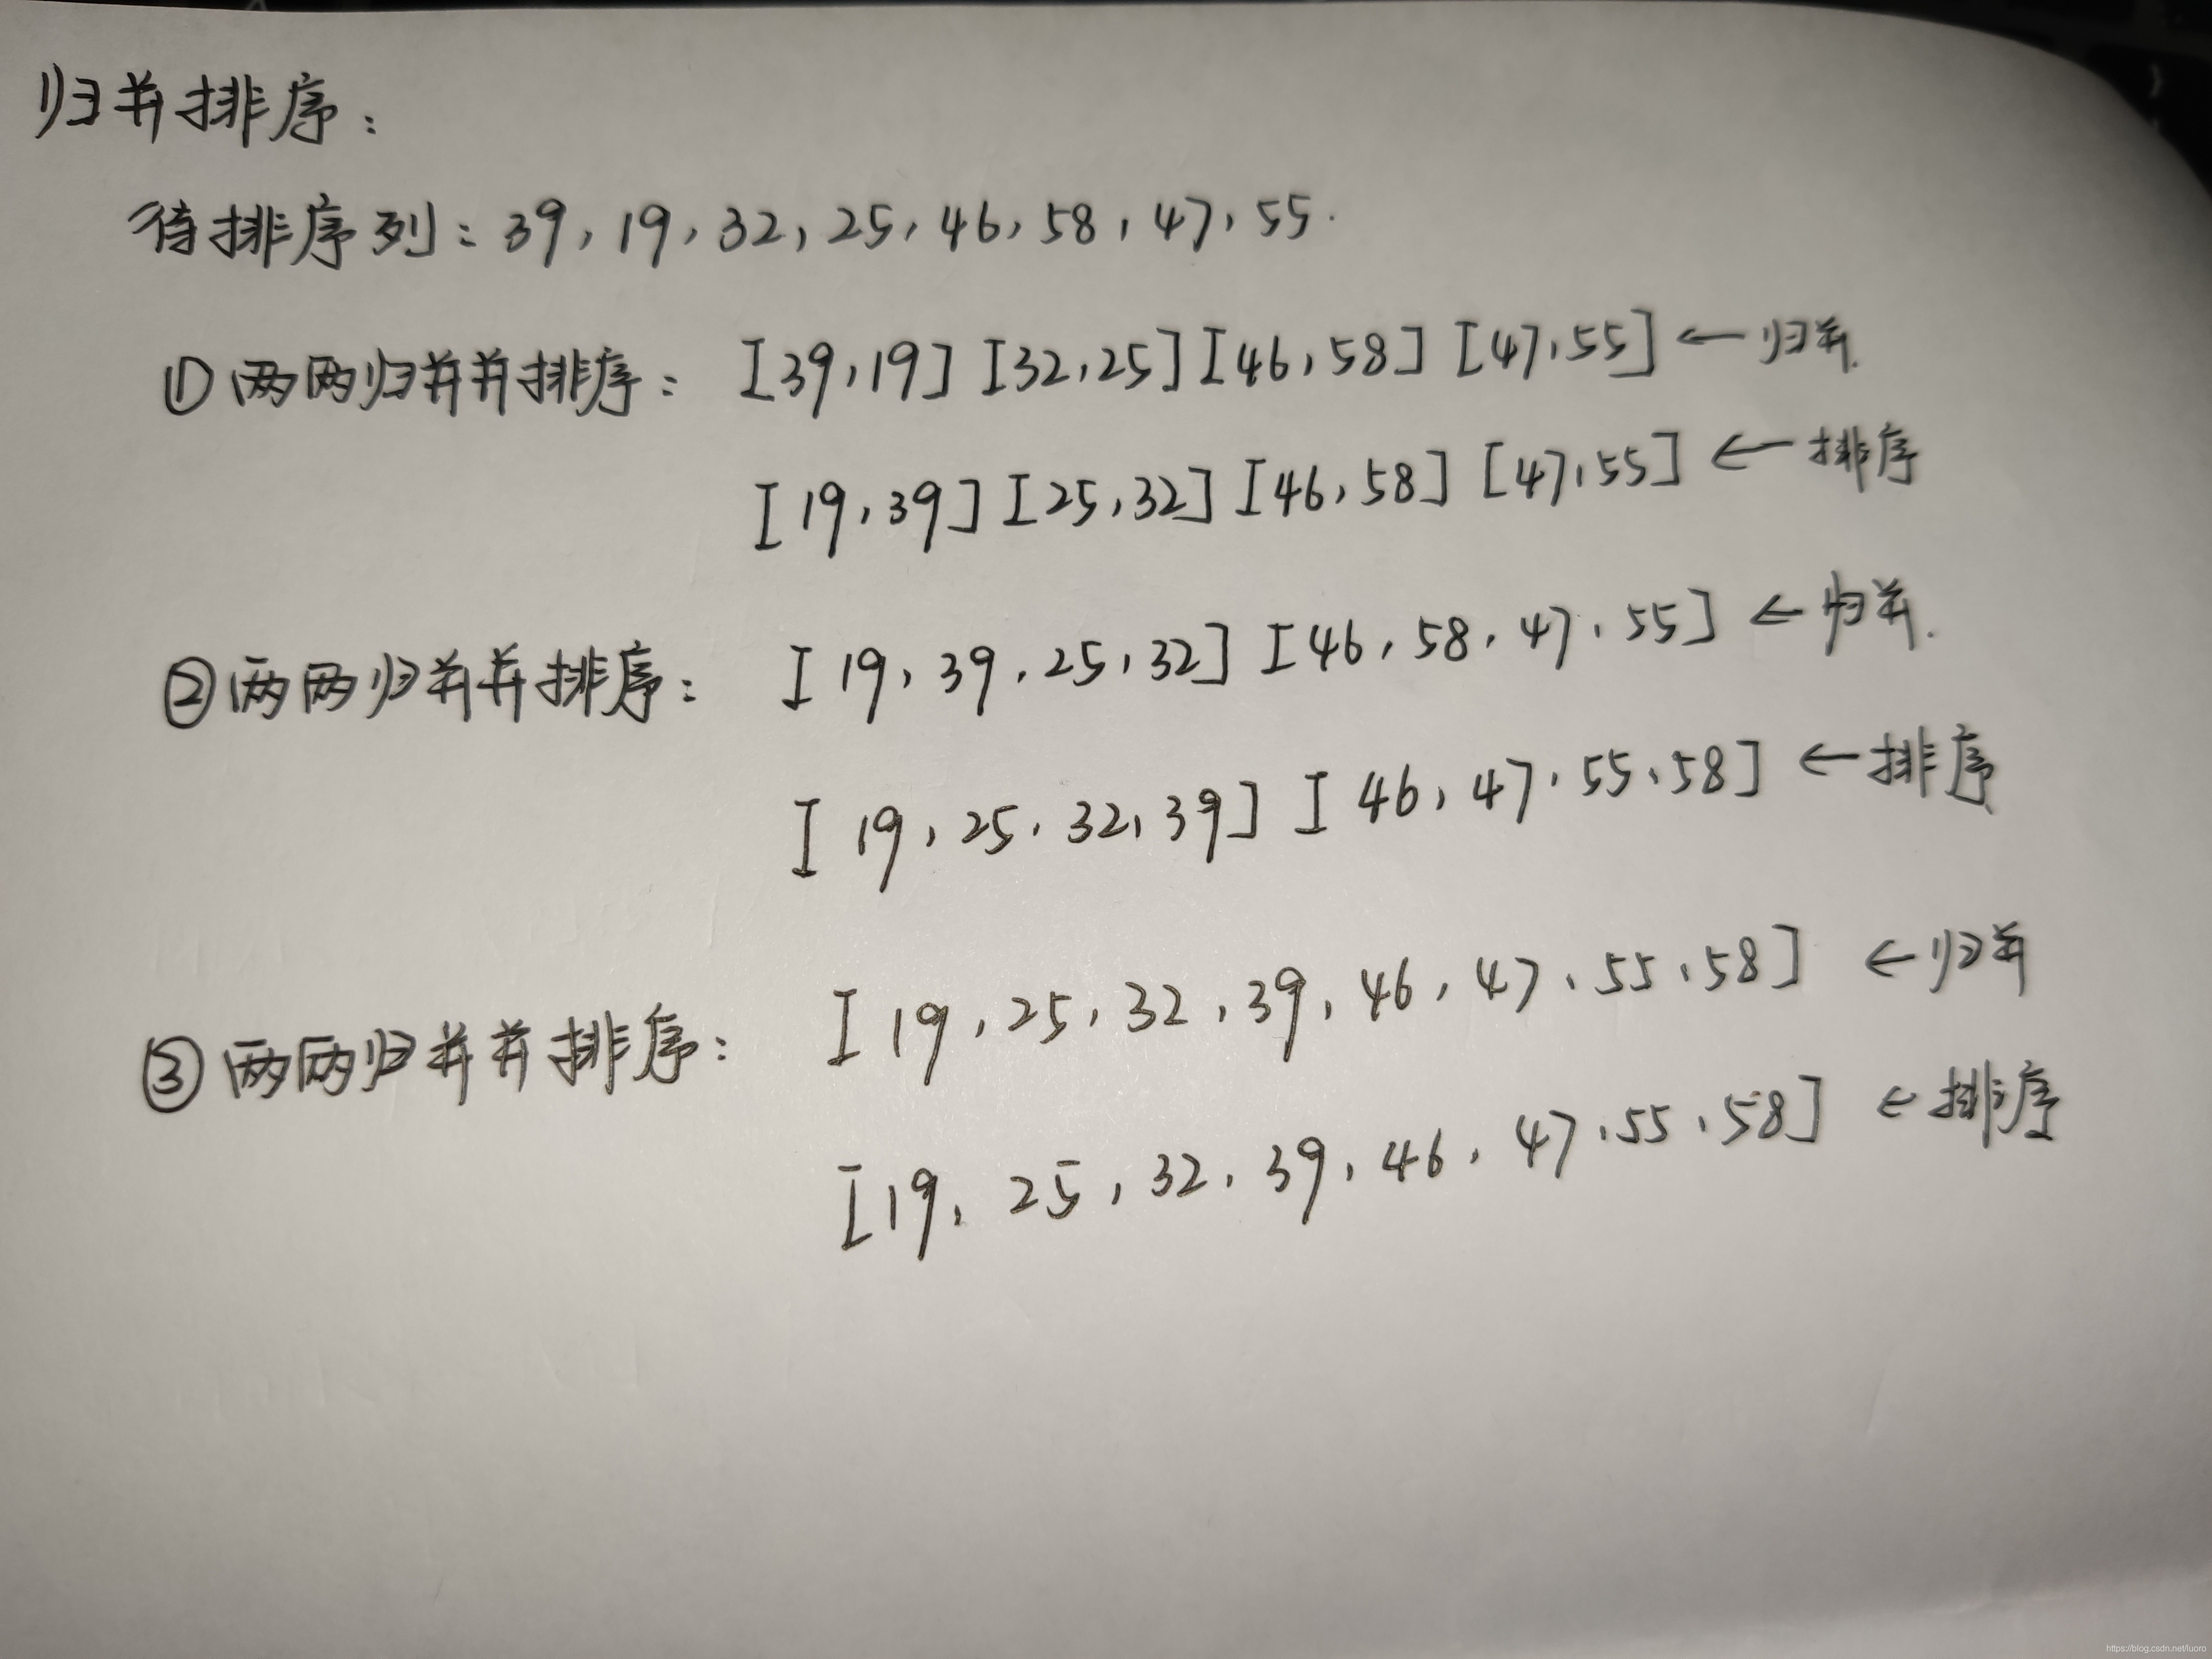 归并排序：
待排序列：39，19，32，25，46，58，47，55．
①两两归并并排序： [39，19] [32，25] [46，58] [47，55] ←归并.
[19，39] [25，32] [46，58] [47，55] ←排序
②两两归并并排序： [19，39，25，32] [46，58，47，55] ←归并.
[19，25，32，39] [46，47，55，58] ←排序
③两两归并并排序： [19，25，32，39，46，47，55，58] ←归并
[19，25，32，39，46，47，55，58] ←排序
https://blog.csdn.net/luoro